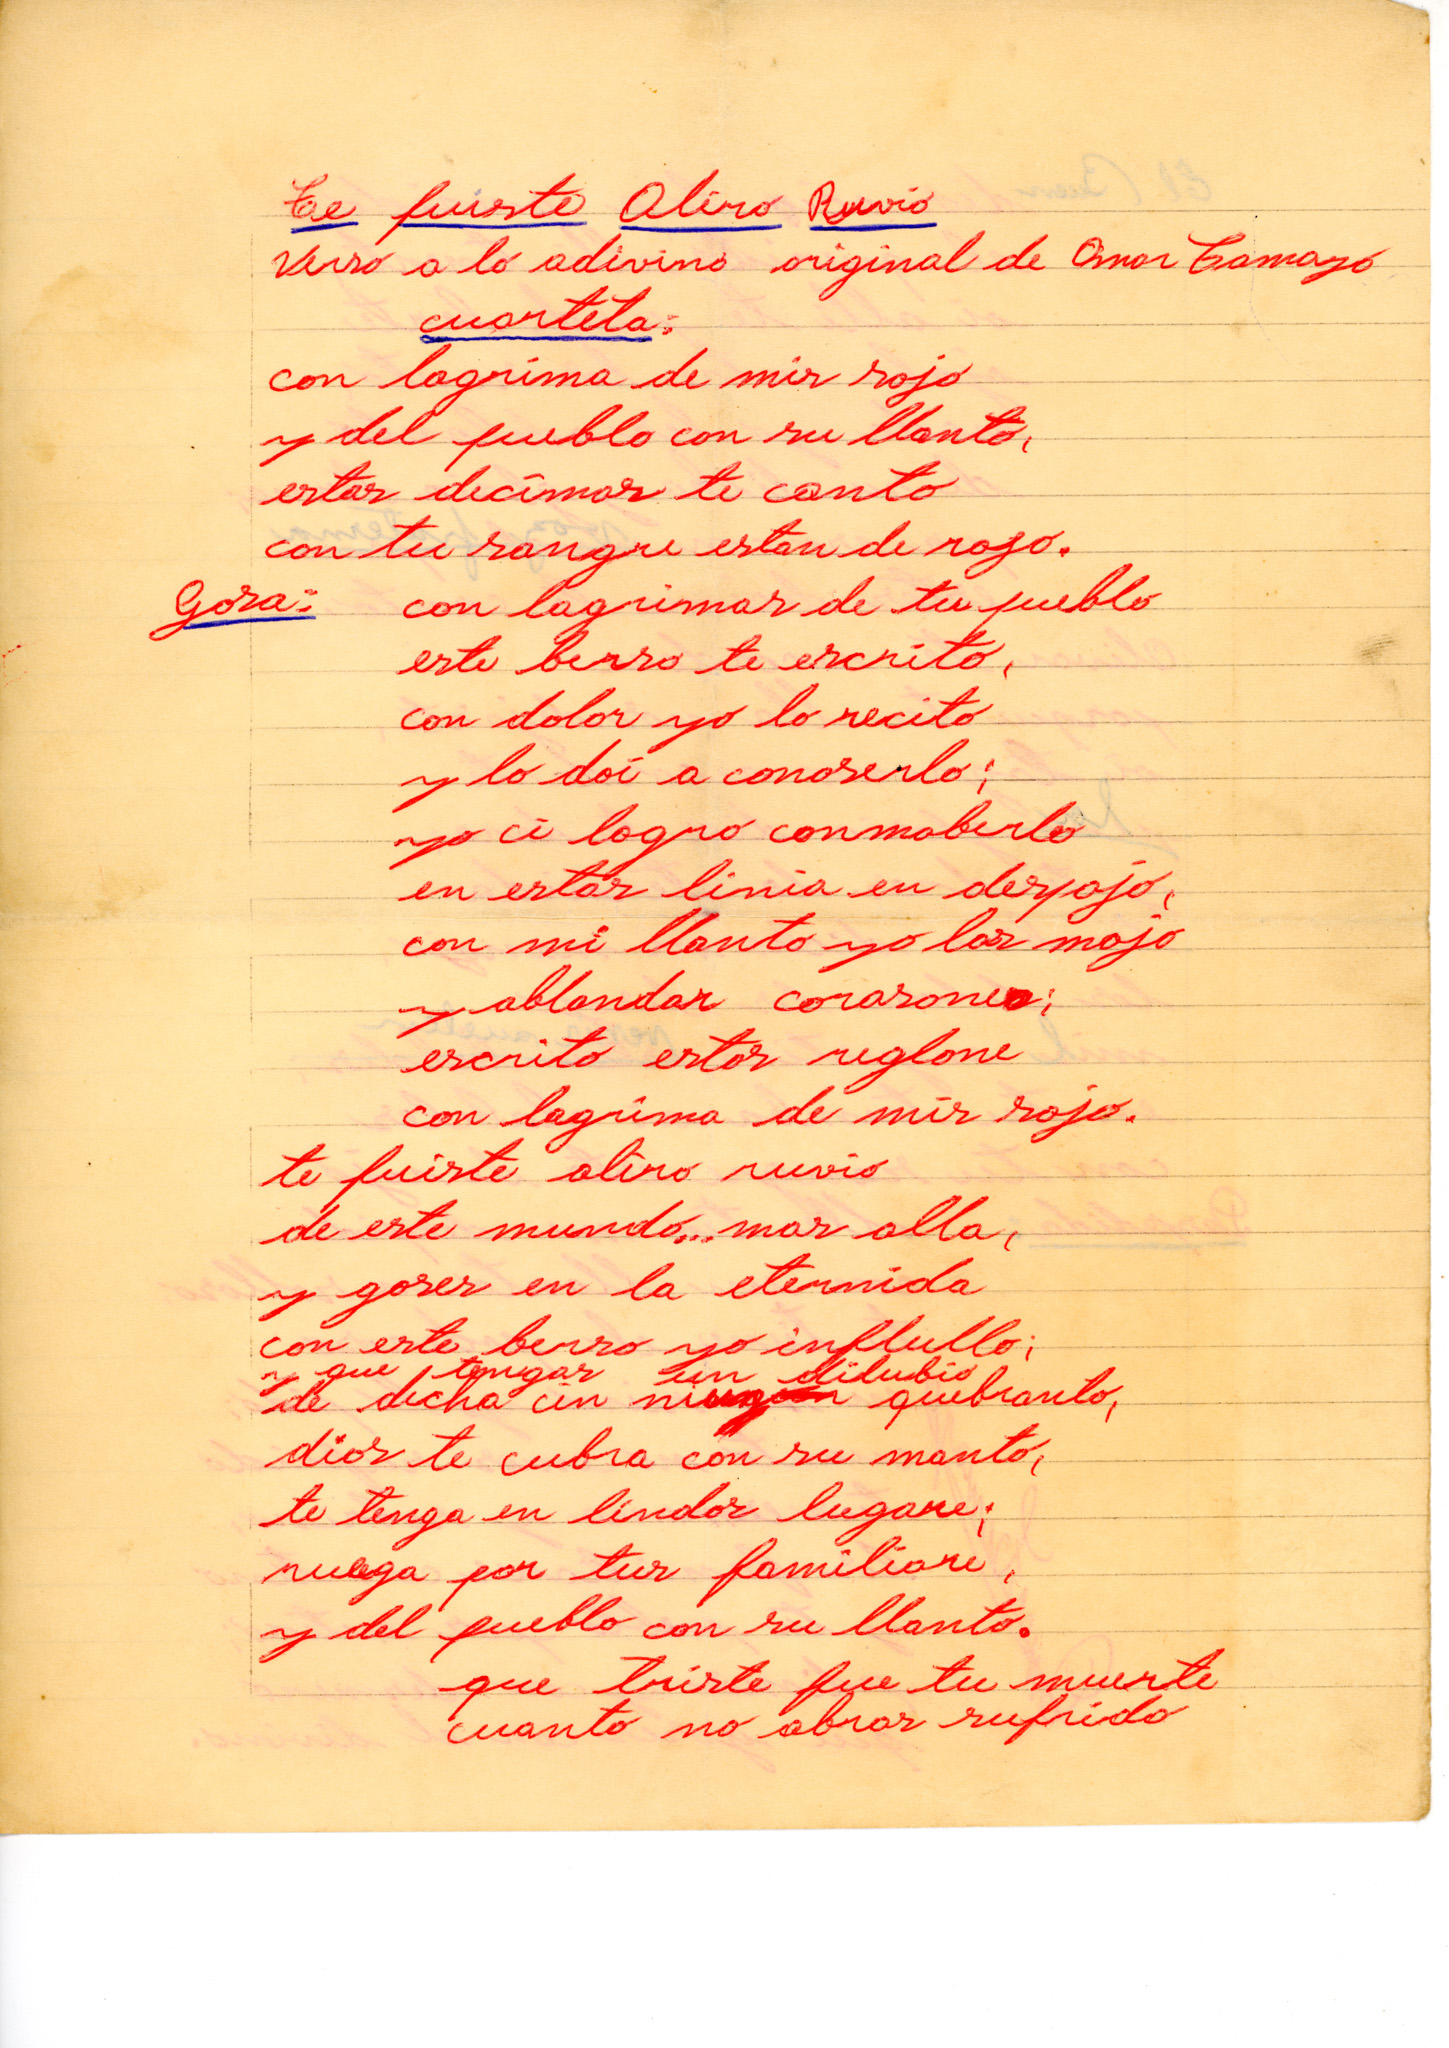 Te fuiste Aliro Ruvio
Verso a lo adivino original de Omar Tamayo
cuarteta:
con lagrima de mis sojo
y del pueblo con su llanto,
estas decimas te canto
con tu sangre estan de rojo.
Gosa: con lagrimas de tu pueblo
este berso te escrito,
con dolor yo lo recito
y lo doi a conoserlo;
yo ci logro conmoberlo
en estas linia en despojo,
con mi llanto yo las mojo
y ablandar corasones;
escrito estos reglone
con lagrima de mis sojo.
te fuiste aliro ruvio
de este mundo... mas alla,
y goses en la eternida
con este berso yo influllo;
y que tengas un dilubio
de dicha cin ningun quebranto,
dios te cubra con su manto,
te tenga en lindos lugare;
ruega por tus familiare,
y del pueblo con su llanto.
que triste fue tu muerte
cuanto no abras sufrido